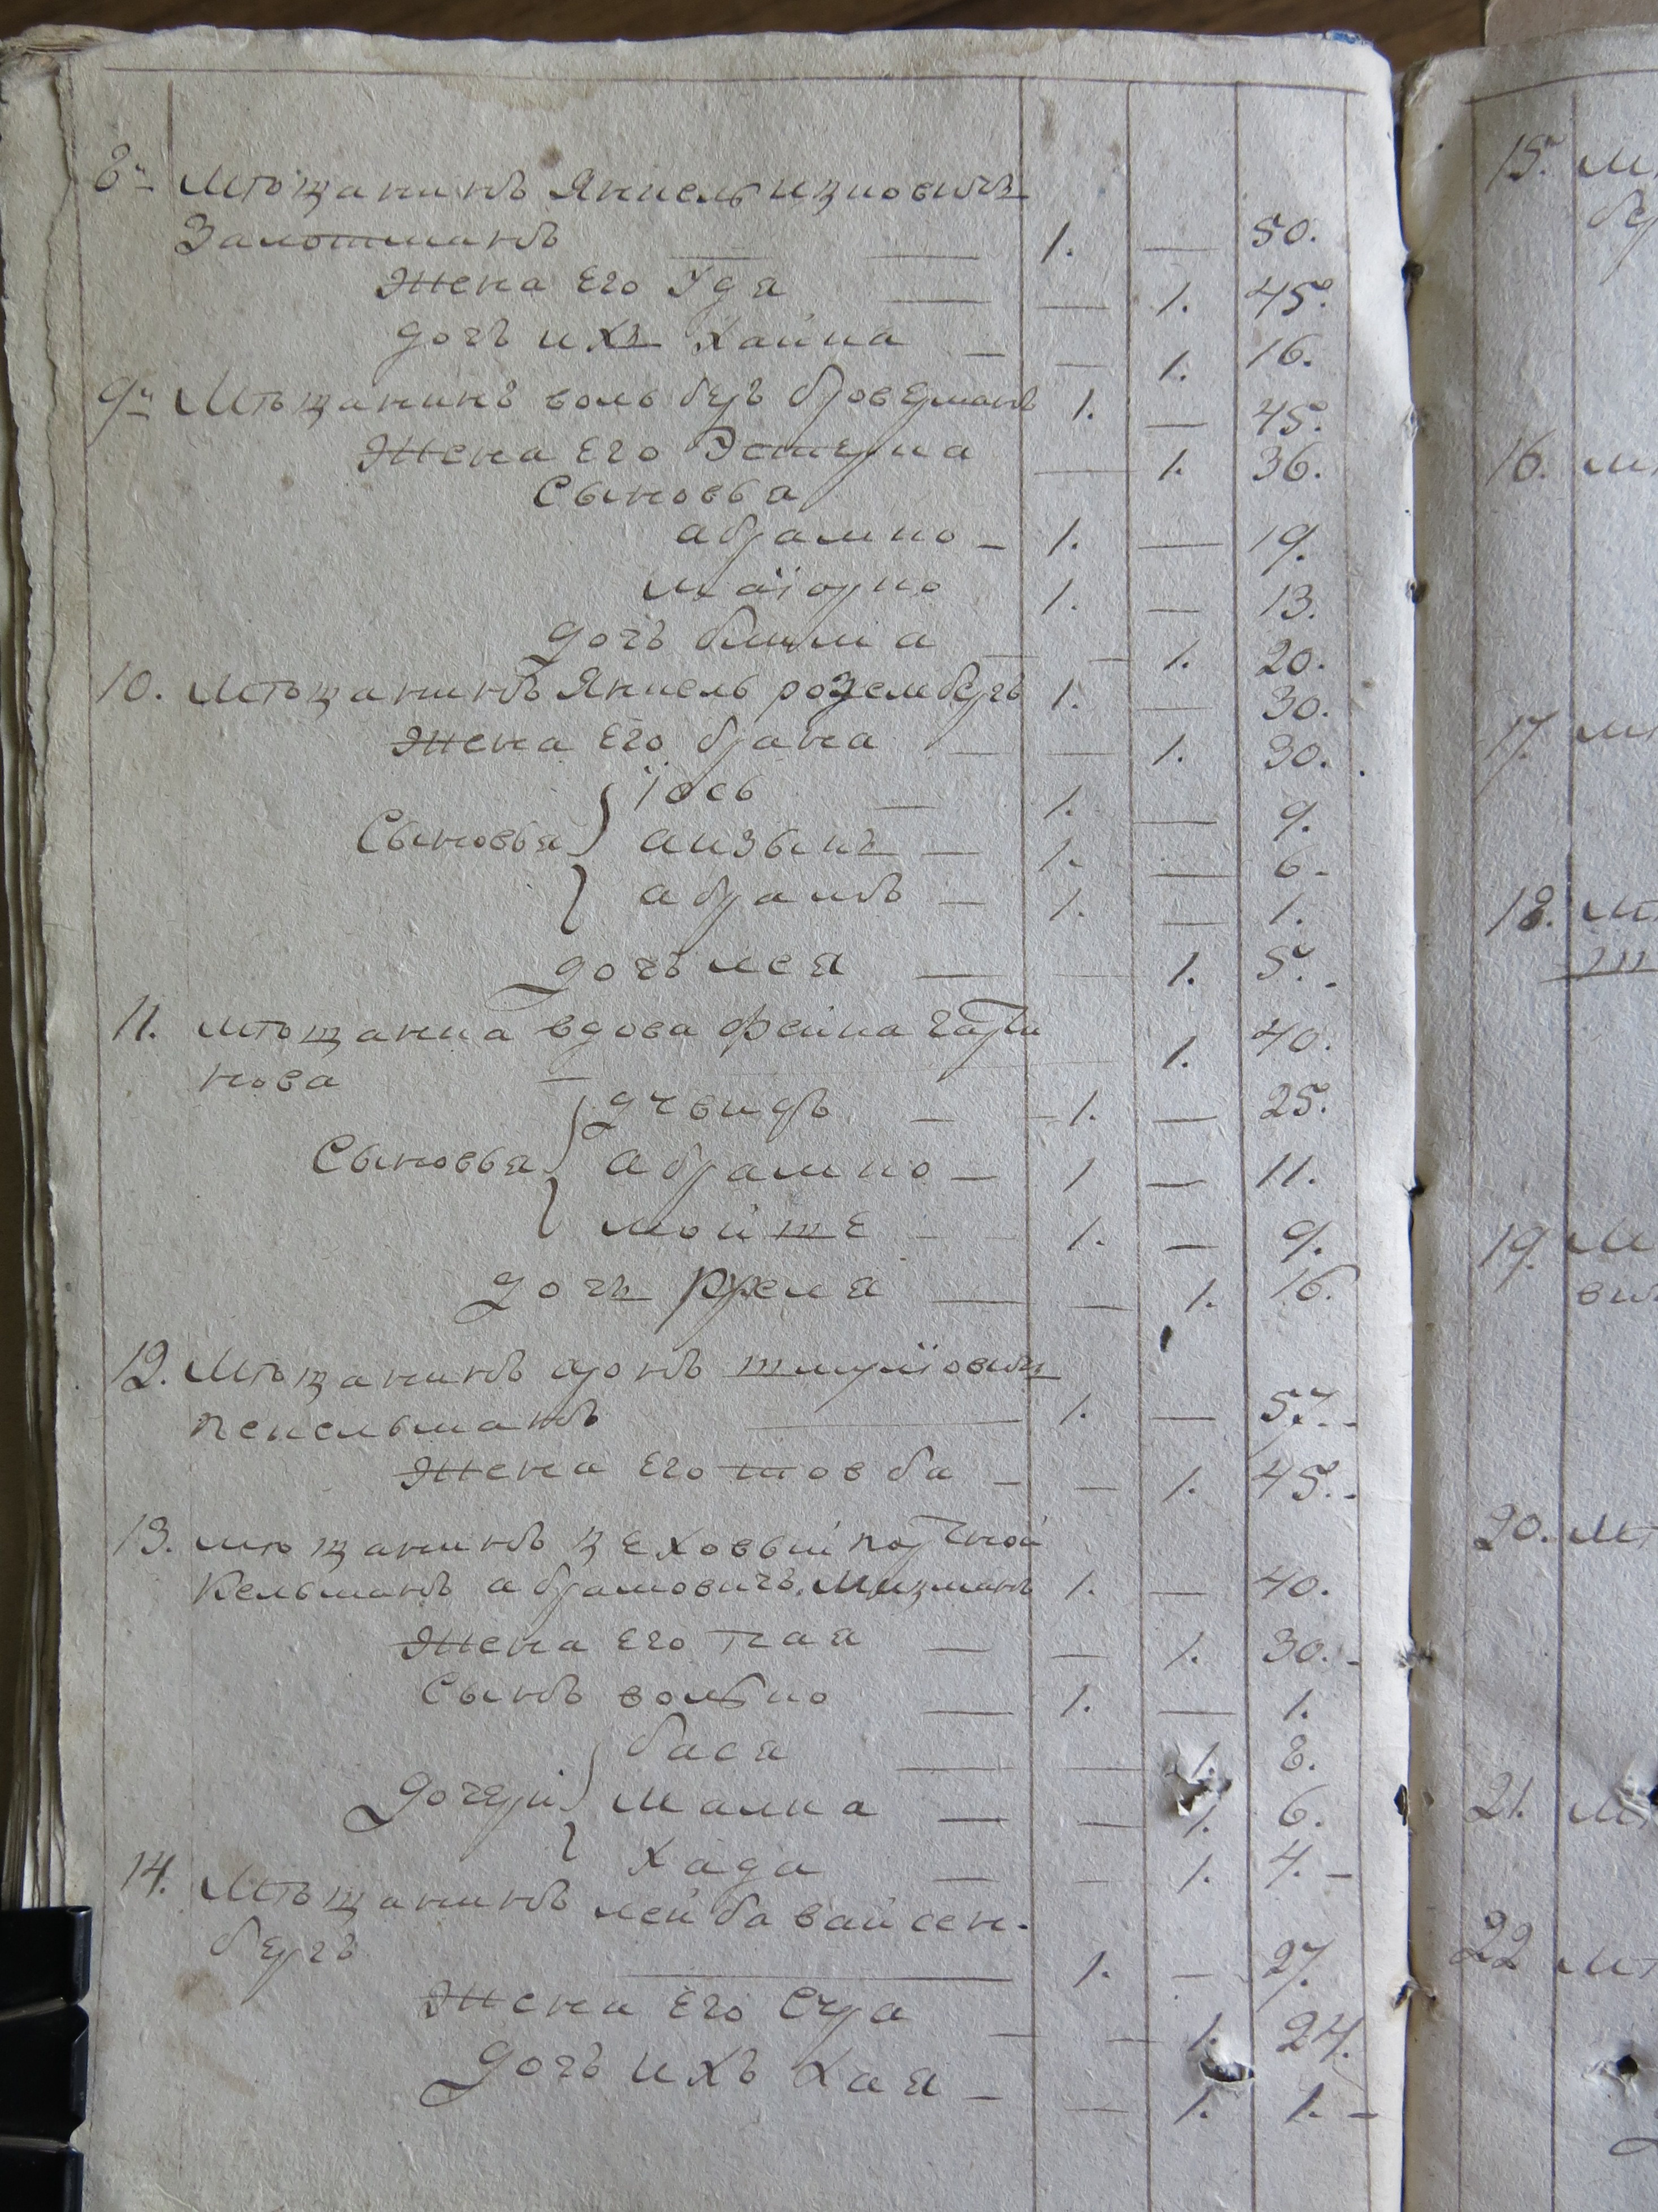 8й Мѣщанинъ Янкель Ицковичъ
Залотманъ 1. — 50.
Жена Его Уда — 1. 45.
дочь ихъ Хайка — 1. 16.
9й Мѣщанинъ воль беръ броверманъ 1. — 45.
Жена Его Эстерка — 1. 36.
Сыновья
абрамко 1. — 19.
маіорко 1. — 13.
дочь блима — 1. 20.
10. Мѣщанинъ Янкель розембергъ 1. — 30.
Жена Его брана — 1. 30.
Їось 1. — 9.
Сыновья аизыкъ 1. — 6.
абрамъ 1. — 1.
дочь лея — 1. 5.
11. мѣщанка вдова фейга
нова 1. 40.
1. — 25.
Сыновья абрамко 1 — 11.
мойше 1. — 9.
дочь — 1. 16.
12. Мѣщанинъ аронъ шмуліовичъ
кекельманъ 1. — 57.
Жена Его товба — 1. 45.
13. мѣщанинъ цеховый портной
Кельманъ абрамовичъ 1. — 40.
Жена Его — 1. 30.
Сынъ волько 1. — 1.
бася — 1. 8.
дочери малка — 1. 6.
хада — 1. 4.
14. Мѣщанинъ лейба вайсен-
бергъ 1. — 27.
Жена Его Сура — 1. 24.
дочь ихъ хая — 1. 1.
15. М
бер
16. м
17. м
18. м
ш
19. М
ви
20. М
21. М
22 М